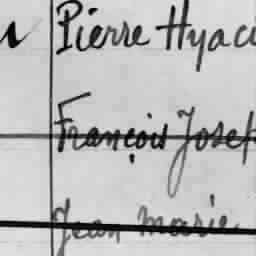 Pierre Hyaci
François Josep
Jean Marie